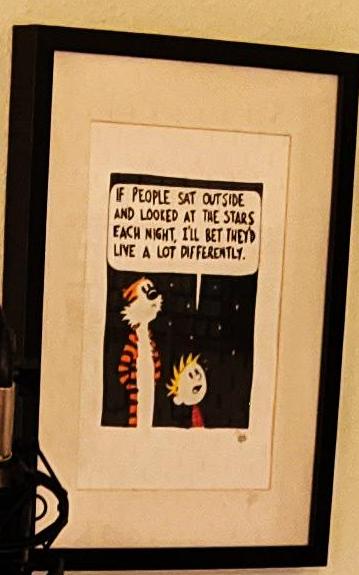 IF PEOPLE SAT OUTSIDE
AND LOOKED AT THE STARS
EACH NIGHT, I'LL BET THEY'D
LIVE A LOT DIFFERENTLY.